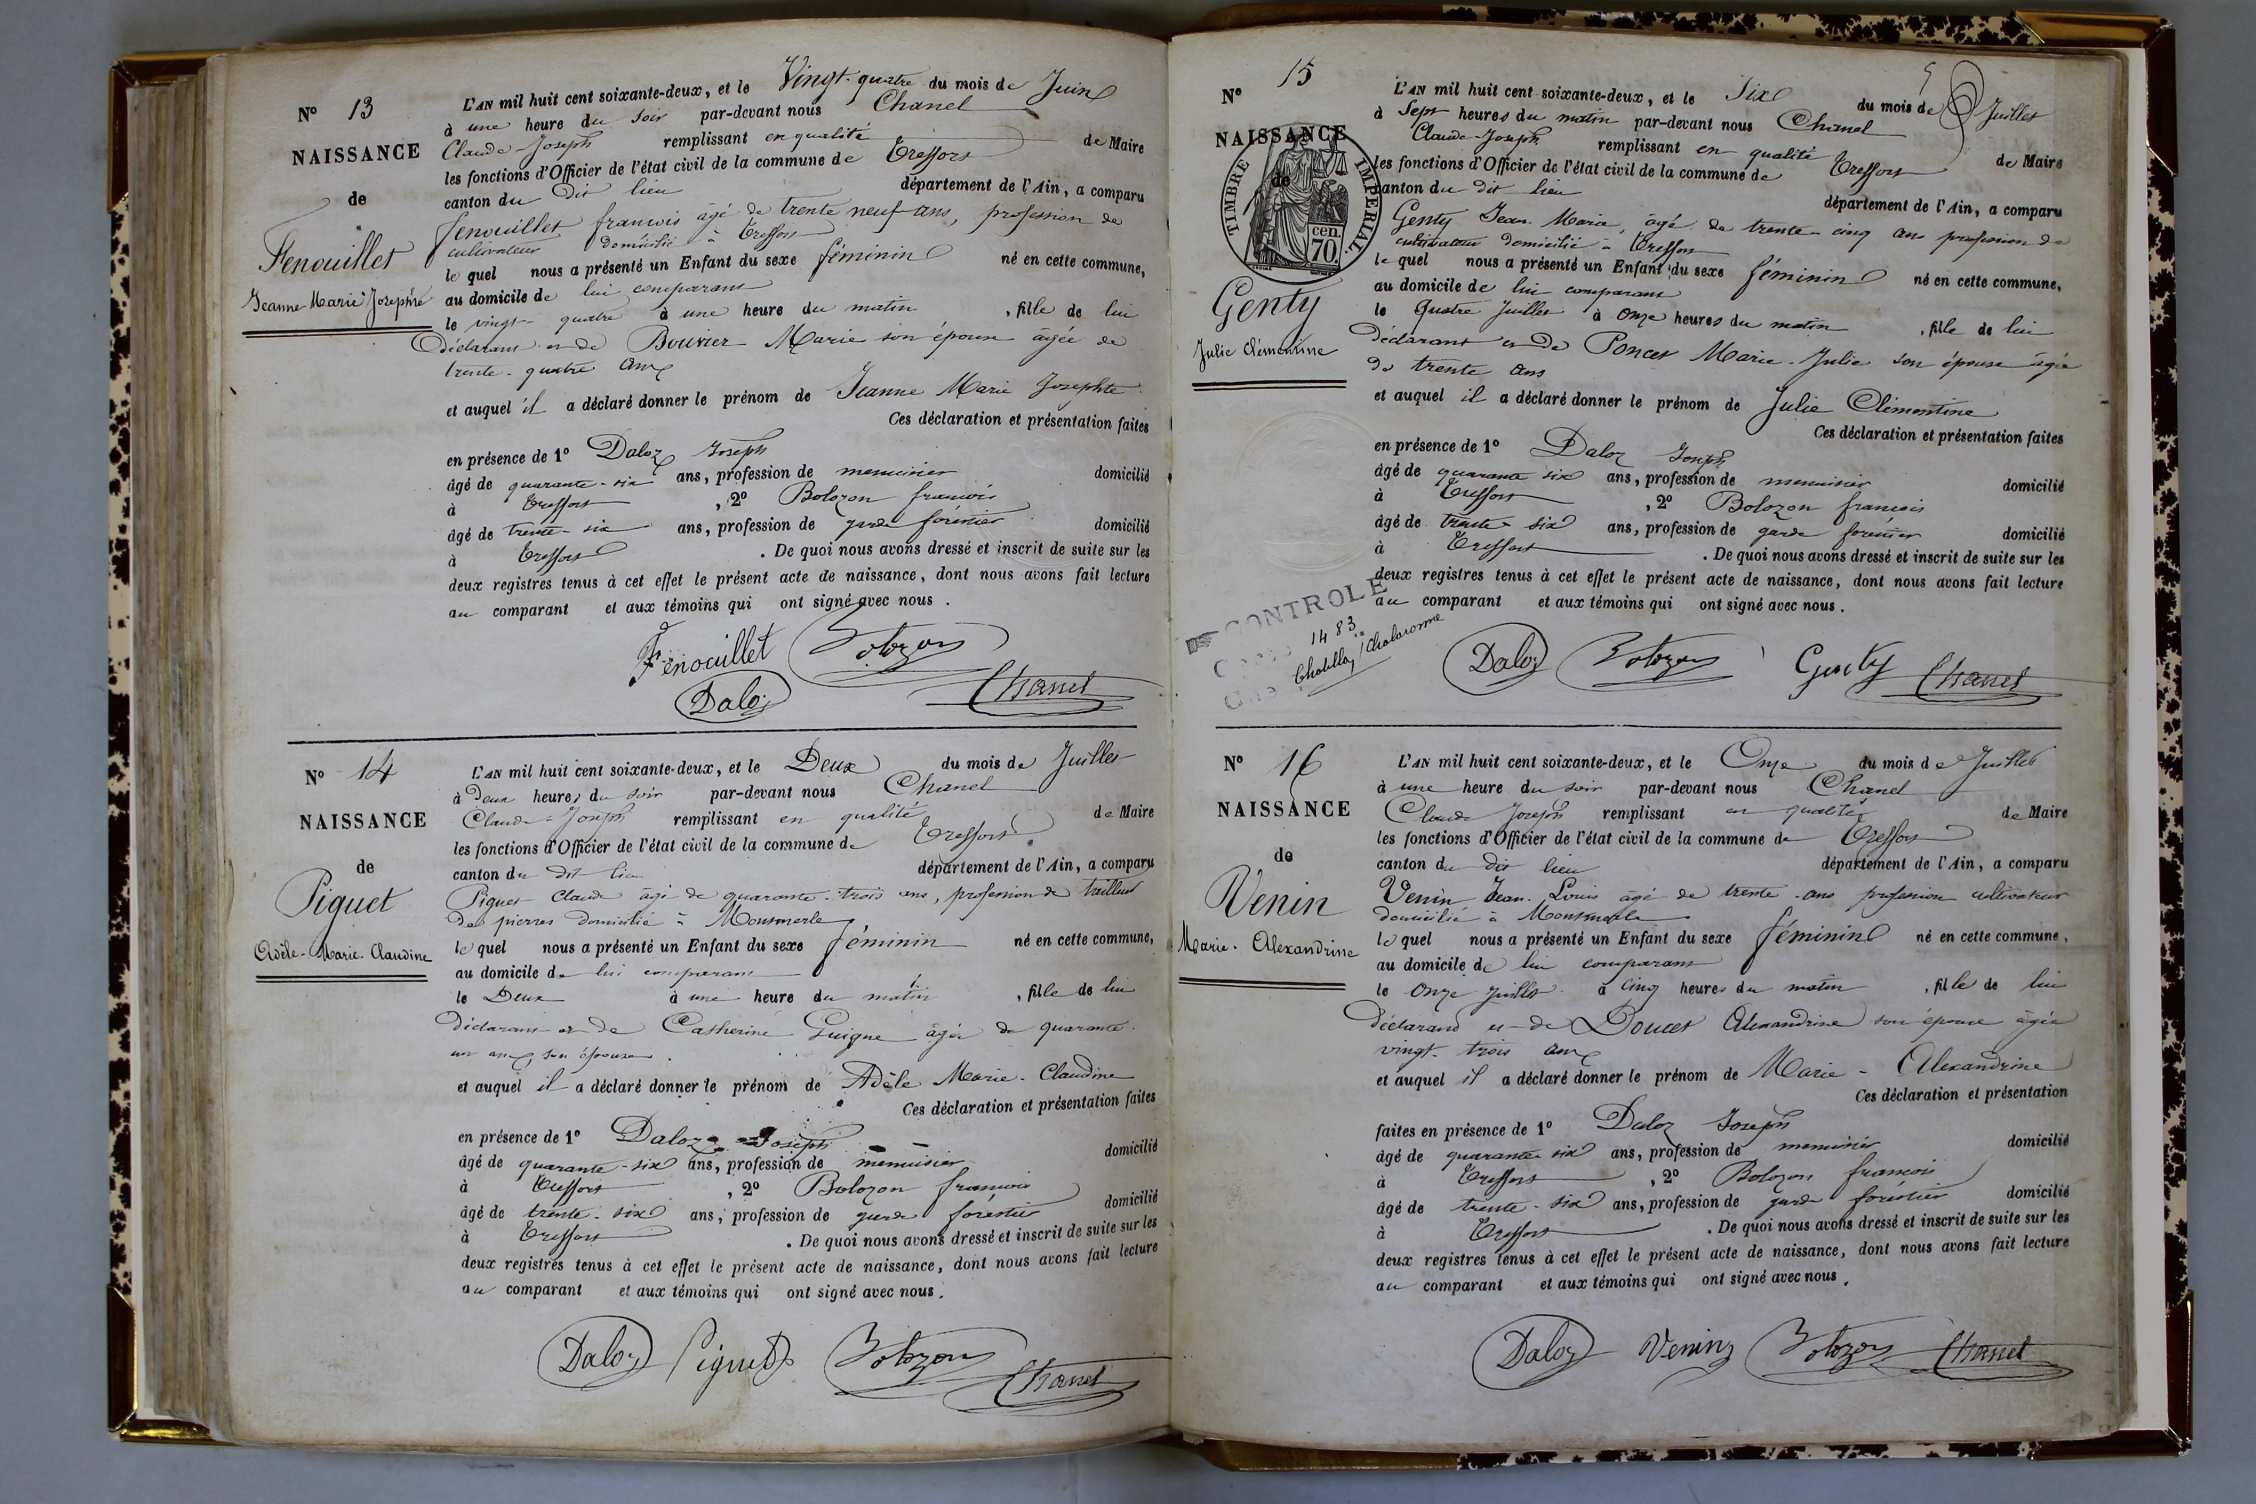 N° 13
NAISSANCE
de
Fenouillet
Jeanne Marie Josephte
L'AN mil huit cent soixante-deux, et le Vingt-quatre du mois de Juin
à une heure du soir par-devant nous Chanel
Claude Joseph remplissant en qualité de Maire
les fonctions d'Officier de l'état civil de la commune de Treffort
canton du dit lieu département de l'Ain, a comparu
fenouillet francois âgé de trente neuf ans, profession de
cultivateur domicilié à Treffort
le quel nous a présenté un Enfant du sexe féminin né en cette commune,
au domicile de lui comparant
le vingt-quatre à une heure du matin, fille de lui
déclarant et de Bouvier Marie son épouse âgée de
trente-quatre ans
et auquel il a déclaré donner le prénom de Jeanne Marie Josephte
Ces déclaration et présentation faites
en présence de 1° Daloz Joseph
âgé de quarante-six ans, profession de menuisier domicilié
à Treffort, 2° Bolozon francois
âgé de trente-six ans, profession de garde forestier domicilié
à Treffort. De quoi nous avons dressé et inscrit de suite sur les
deux registres tenus à cet effet le présent acte de naissance, dont nous avons fait lecture
au comparant et aux témoins qui ont signé avec nous.
Fenouillet Bolozon
Daloz Chanel
N° 14
NAISSANCE
de
Piguet
Adèle-Marie-Claudine
L'AN mil huit cent soixante-deux, et le Deux du mois de Juillet
à deux heures du soir par-devant nous Chanel
Claude-Joseph remplissant en qualité de Maire
les fonctions d'Officier de l'état civil de la commune de Treffort
canton du dit lieu département de l'Ain, a comparu
Piguet claude âgé de quarante-trois ans, profession de tailleur
des pierres domicilié à Montmerle
le quel nous a présenté un Enfant du sexe féminin né en cette commune,
au domicile de lui comparant
le Deux à une heure du matin, fille de lui
déclarant et de Catherine Guigue âgée de quarante-
un ans, son épouse.
et auquel il a déclaré donner le prénom de Adèle Marie-Claudine
Ces déclaration et présentation faites
en présence de 1° Daloz Joseph
âgé de quarante-six ans, profession de menuisier domicilié
à Treffort, 2° Bolozon francois
âgé de trente-six ans, profession de garde forestier domicilié
à Treffort. De quoi nous avons dressé et inscrit de suite sur les
deux registres tenus à cet effet le présent acte de naissance, dont nous avons fait lecture
au comparant et aux témoins qui ont signé avec nous.
Daloz Piguet Bolozon Chanel
N° 15
NAISSANCE
de
TIMBRE IMPERIAL.
cen.
70.
Genty
Julie Clémentine
L'AN mil huit cent soixante-deux, et le Six du mois de Juillet
à Sept heures du matin par-devant nous Chanel
Claude-Joseph remplissant en qualité de Maire
les fonctions d'Officier de l'état civil de la commune de Treffort
canton du dit lieu département de l'Ain, a comparu
Genty Jean Marie, âgé de trente-cinq ans profession de
cultivateur domicilié à Treffort
le quel nous a présenté un Enfant du sexe féminin né en cette commune,
au domicile de lui comparant
le Quatre Juillet à onze heures du matin, fille de lui
déclarant et de Poncet Marie-Julie son épouse âgée
de trente ans
et auquel il a déclaré donner le prénom de Julie Clémentine
Ces déclaration et présentation faites
en présence de 1° Daloz Joseph
âgé de quarante six ans, profession de menuisier domicilié
à Treffort, 2° Bolozon francois
âgé de trente-six ans, profession de garde forestier domicilié
à Treffort. De quoi nous avons dressé et inscrit de suite sur les
deux registres tenus à cet effet le présent acte de naissance, dont nous avons fait lecture
au comparant et aux témoins qui ont signé avec nous.
CONTROLE
1483
Chatillon s/ Chalaronne
Daloz Bolozon Genty Chanel
N° 16
NAISSANCE
de
Venin
Marie-Alexandrine
L'AN mil huit cent soixante-deux, et le Onze du mois de Juillet
à une heure du soir par-devant nous Chanel
Claude Joseph remplissant en qualité de Maire
les fonctions d'Officier de l'état civil de la commune de Treffort
canton du dit lieu département de l'Ain, a comparu
Venin Jean-Louis âgé de trente ans profession cultivateur
domicilié à Montmerle
le quel nous a présenté un Enfant du sexe féminin né en cette commune,
au domicile de lui comparant
le onze Juillet à cinq heures du matin, fille de lui
déclarand et de Doucet Alexandrine son épouse âgée
vingt-trois ans
et auquel il a déclaré donner le prénom de Marie-Alexandrine
Ces déclaration et présentation
faites en présence de 1° Daloz Joseph
âgé de quarante six ans, profession de menuisier domicilié
à Treffort, 2° Bolozon francois
âgé de trente-six ans, profession de garde forestier domicilié
à Treffort. De quoi nous avons dressé et inscrit de suite sur les
deux registres tenus à cet effet le présent acte de naissance, dont nous avons fait lecture
au comparant et aux témoins qui ont signé avec nous.
Daloz Venin Bolozon Chanel